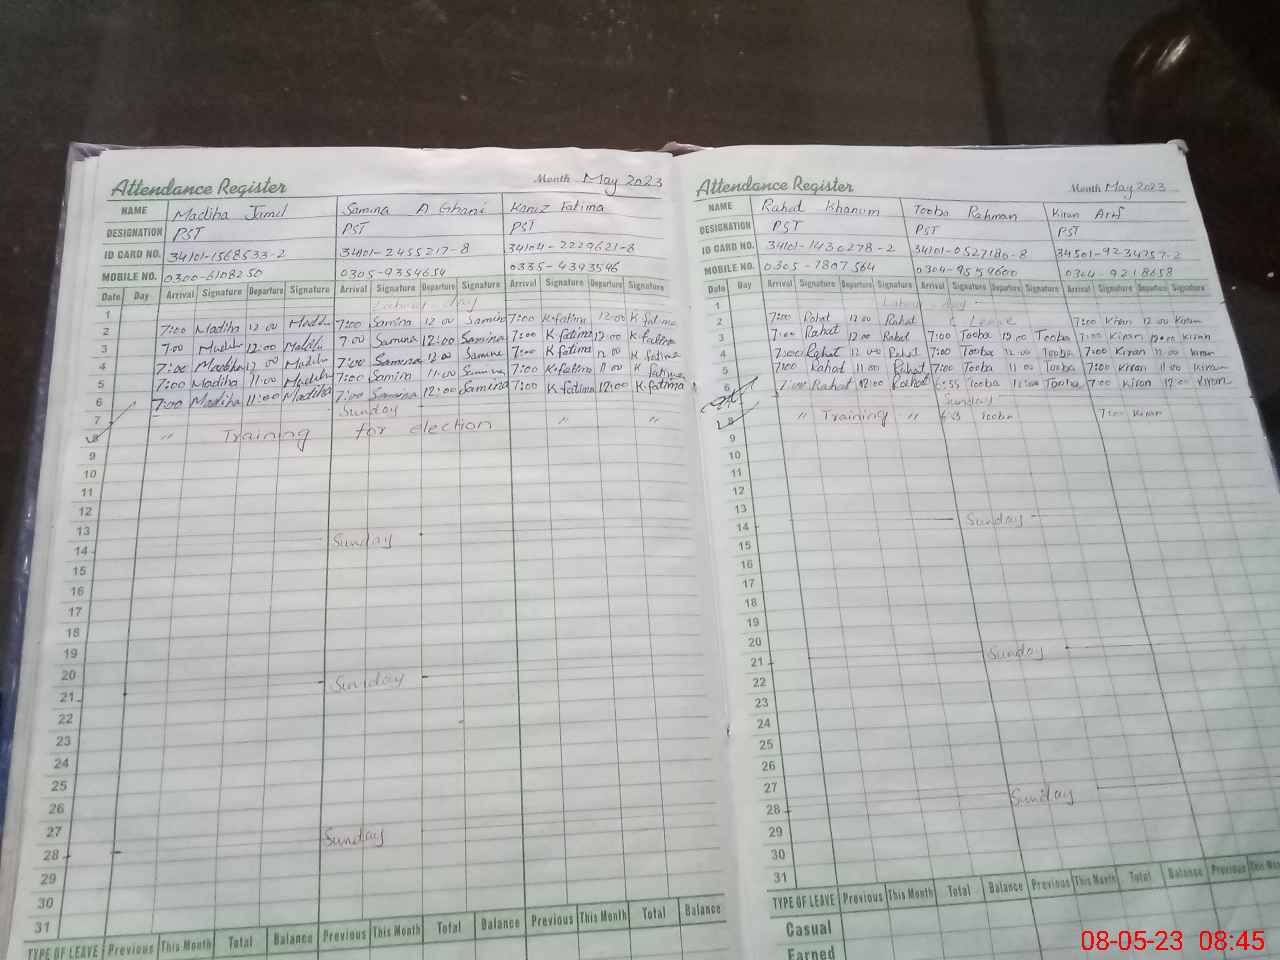 Attendance Register Month May 2023
NAME Madiha Jimil Samina A Ghani Kaniz Fatima
DESIGNATION PST PST PST
ID CARD NO. 34101-1568533-2 34101-2455217-8 34104-2229621-8
MOBILE NO. 0300-6108250 0305-9354654 0335-4393546
Date Day Arrival Signature Departure Signature Arrival Signature Departure Signature Arrival Signature Departure Signature
1 Labour day
2 7:00 Madiha 12 00 Madiha 7:00 Samina 12 00 Samina 7:00 K.fatima 12:00 K fatima
3 7:00 Madiha 12:00 Madiha 7:00 Samina 12:00 Samina 7:00 K fatima 12:00 K fatima
4 7:00 Madiha 12 00 Madiha 7:00 Samina 12 00 Samina 7:00 K fatima 12 00 K fatima
5 7:00 Madiha 11:00 Madiha 7:00 Samina 11:00 Samina 7:00 K.fatima 11 00 K fatima
6 7:00 Madiha 11:00 Madiha 7:00 Samina 12:00 Samina 7:00 K fatima 12:00 K.fatima
7 Sunday
8 " Training for election " "
9
10
11
12
13
14 Sunday
15
16
17
18
19
20
21 Sunday
22
23
24
25
26
27
28 Sunday
29
30
31
TYPE OF LEAVE Previous This Month Total Balance Previous This Month Total Balance Previous This Month Total Balance
Attendance Register Month May 2023
NAME Rahat Khanum Tooba Rahman Kiran Arif
DESIGNATION PST PST PST
ID CARD NO. 34101-1430278-2 34101-0527180-8 34501-9234757-2
MOBILE NO. 0305-7807564 0304-9554600 0304-9218658
Date Day Arrival Signature Departure Signature Arrival Signature Departure Signature Arrival Signature Departure Signature
1 Labour day
2 7:00 Rahat 12:00 Rahat C Leave 7:00 Kiran 12 00 Kiran
3 7:00 Rahat 12:00 Rahat 7:00 Tooba 12:00 Tooba 7:00 Kiran 12:00 Kiran
4 7:00 Rahat 12:00 Rahat 7:00 Tooba 12:00 Tooba 7:00 Kiran 12:00 Kiran
5 7:00 Rahat 11:00 Rahat 7:00 Tooba 11 00 Tooba 7:00 Kiran 11 00 Kiran
6 7:00 Rahat 12:00 Rahat 6:55 Tooba 12:00 Tooba 7:00 Kiran 12:00 Kiran
Sunday
8 " Training " 6:55 Tooba 7:00 Kiran
9
10
11
12
13
14 Sunday
15
16
17
18
19
20
21 Sunday
22
23
24
25
26
27
28 Sunday
29
30
31
TYPE OF LEAVE Previous This Month Total Balance Previous This Month Total Balance Previous This Month
Casual
Earned
08-05-23 08:45